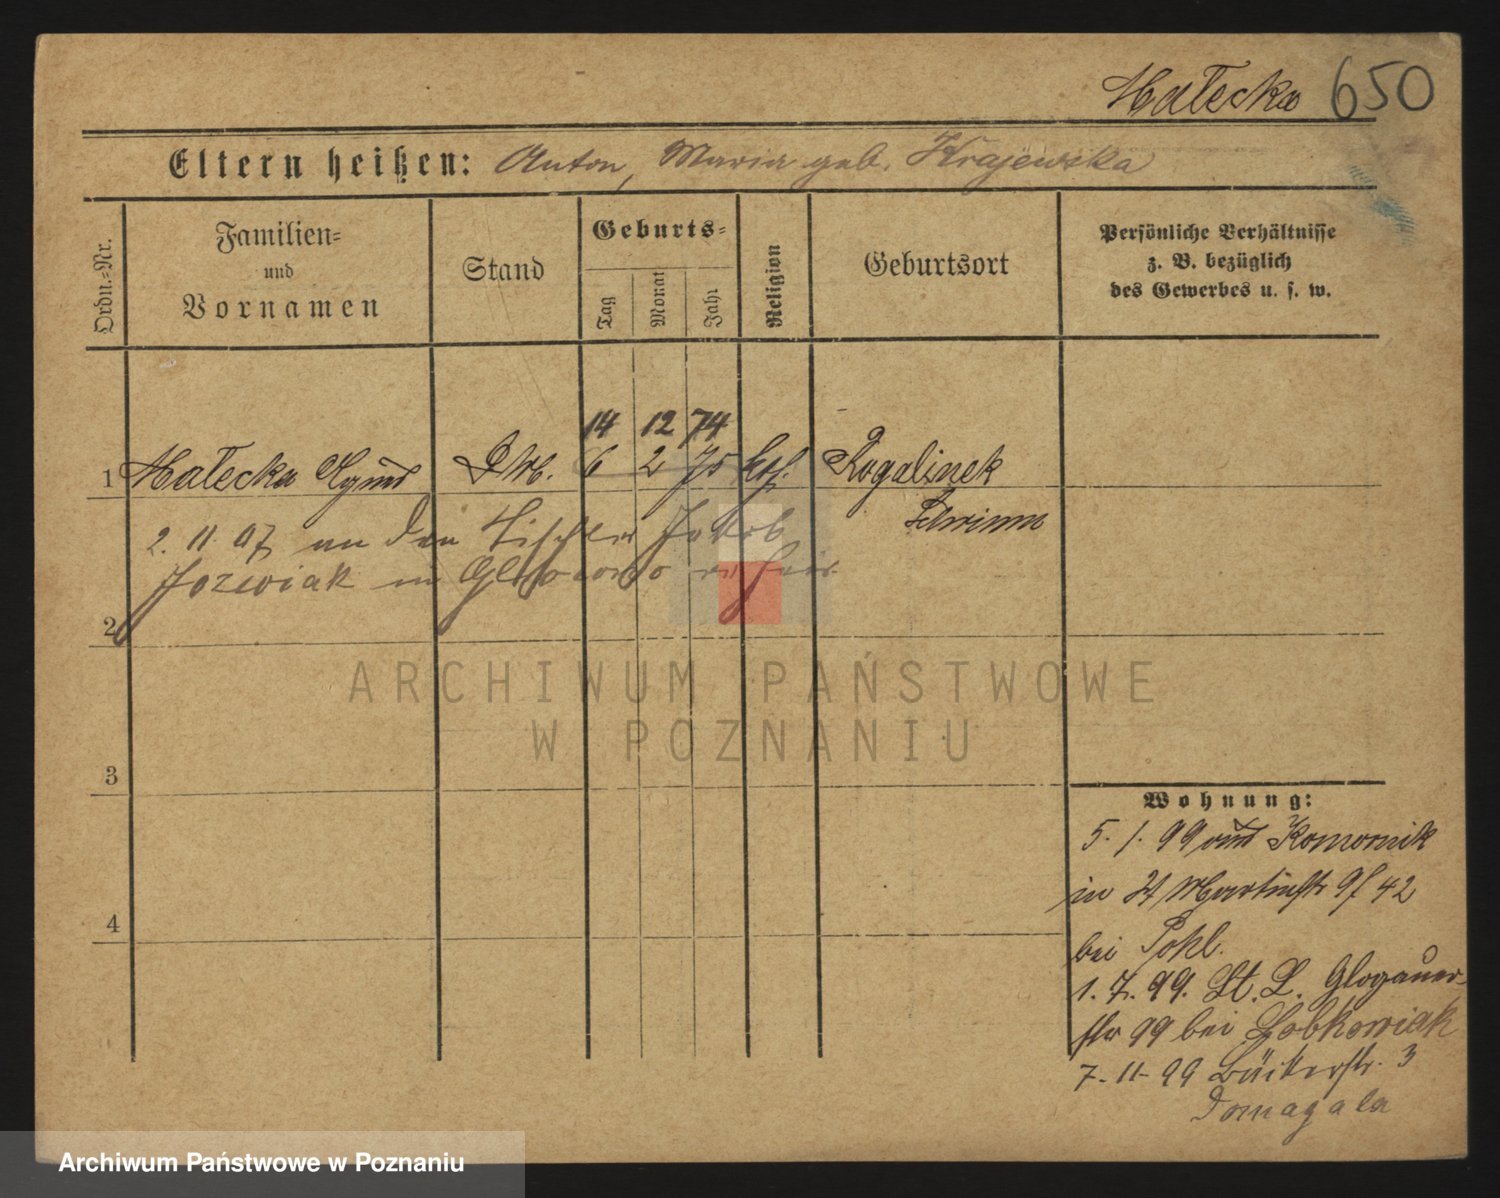 Małecka 650
Eltern heißen: Anton, Maria geb. Krajewska
Ordn.-Nr.
Familien-
und
Vornamen
Stand
Geburts-
Tag
Monat
Jahr
Religion
Geburtsort
Persönliche Verhältnisse
z. B. bezüglich
des Gewerbes u. s. w.
14 12 74
1 Małecka 6 2 75 kth. Rogalinek
Schrimm
2. 11. 97 an den Tischler Jakob
Jozwiak in verheir.
2
3
4
Wohnung:
5. 1. 99 aus Komornik
in St Martinstr 42
bei Pohl.
1. 7. 99. St. L. Glogauer-
str 99 bei Lobkowiak
7-11-99 Bäckerstr. 3
Domagala
ARCHIWUM PAŃSTWOWE
W POZNANIU
Archiwum Państwowe w Poznaniu